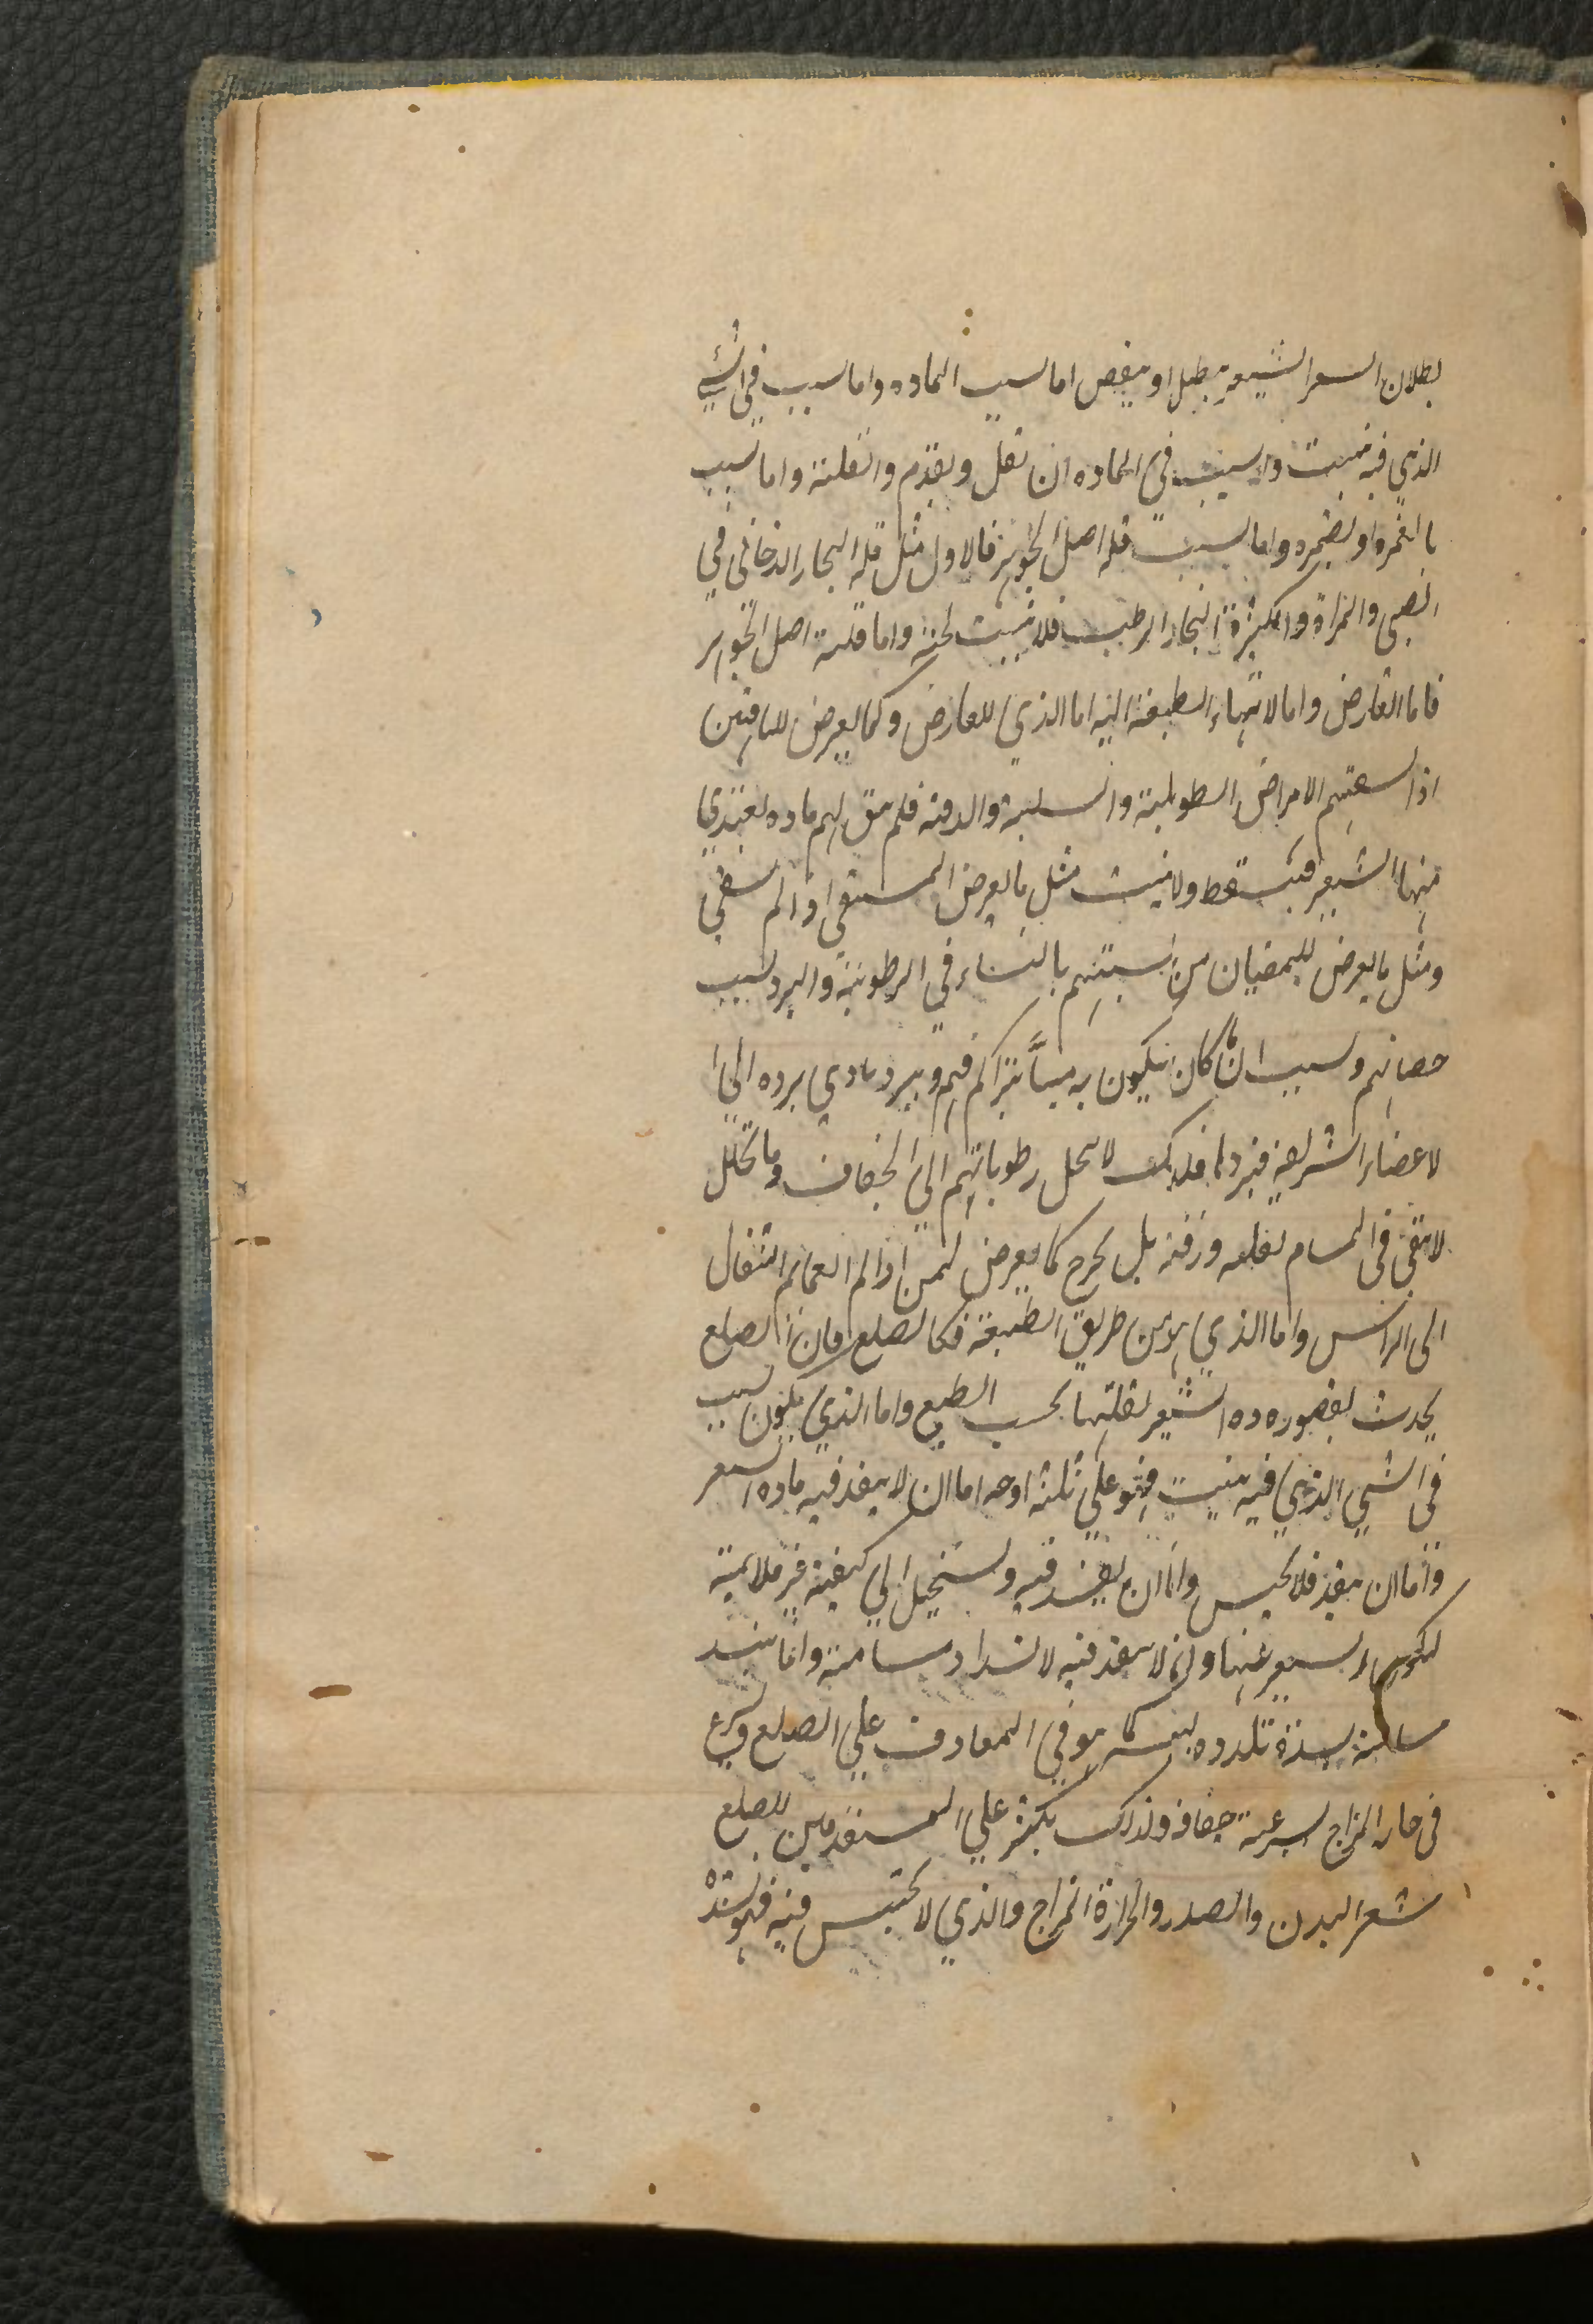 بطلان السعر الشعير يبطل او ينقص اما لسبب الماده واما لسبب في الشي
الذي فيه ينبت والسبب في الماده ان تقل وبعدم والقلته واما لسبب
ما لغمره او لضمره واما لسبب قله اصل الجوهر فالاول مثل قله البخار الدخاني في
الصبي والمراة والكثرة البخار الرطب فلا ينبت لحيته واما قلته اصل الجوهر
فاما العارض واما لانتهاء الطبيعة اليه اما الذي للعارض وكما يعرض للناقهين
اذا لسعتهم الامراض الطويلية والسلية والدقه فلم يبق لهم ماده يغتذي
منها الشعير فيسقط ولا ينبت مثل ما يعرض المستقي اذا لم يسقي
ومثل ما يعرض للخصيان من نسبتهم بالنساء في الرطوبة والبرد لسبب
خصائهم ولسبب ان ما كان يتكون به منيا يتراكم فيهم ويبرد ويادي برده الي ا
لاعضاء الشريفه فيبرد ها فلذلك لا تتحلل رطوباتهم الي الجفاف وما تحلل
لا يبقي في المسام لقلعه ورقته بل يخرج كما يعرض لمن اذا لم العمايم الثقال
الى الراس واما الذي هو من طريق الطبيعة فكالصلع فان الصلع
يحدث لقصور ماده الشعير لقلتها بحسب الطبع واما الذي يكون لسبب
في الشي الذي فيه ينبت فهو علي ثلثه اوجه اما ان لا ينفذ فيه ماده السعر
واما ان ينفذ فلا يحبس واما ان يفسد فيه ويستحيل الي كيفيته غير ملائمة
لتكون السعير عنها وانما لا ينفذ فيه لانسداد مسامته وانما ينسد
مسامته لسدة تلذذه ليبسه كما هو في المعادن علي الصلع ويسرع
في حار المزاج لسرعة جفافه ولذلك يكثر علي المستقدمين للصلع
شعر البدن والصدر والحرارة المزاج والذي لا يحتبس فيه فهو لشدة